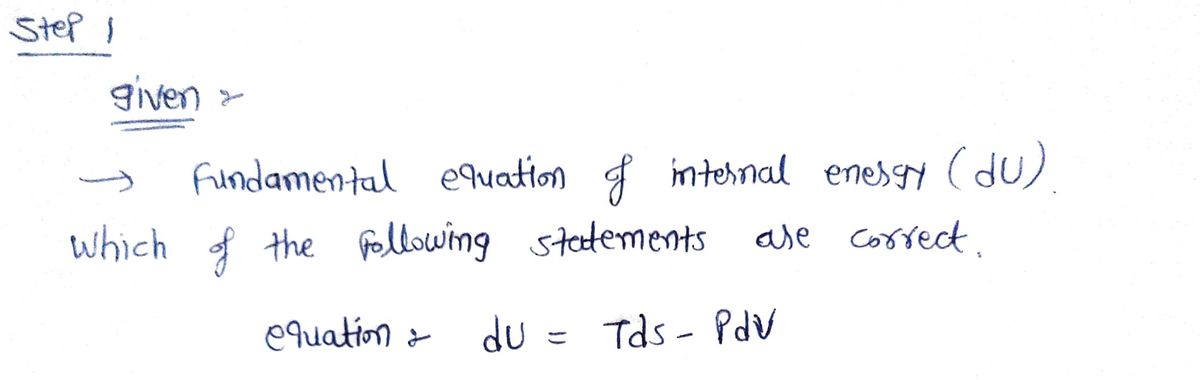 Step 1
given :-
→ Fundamental equation of internal energy (dU).
which of the following statements are correct.
equation :- dU = Tds - PdV